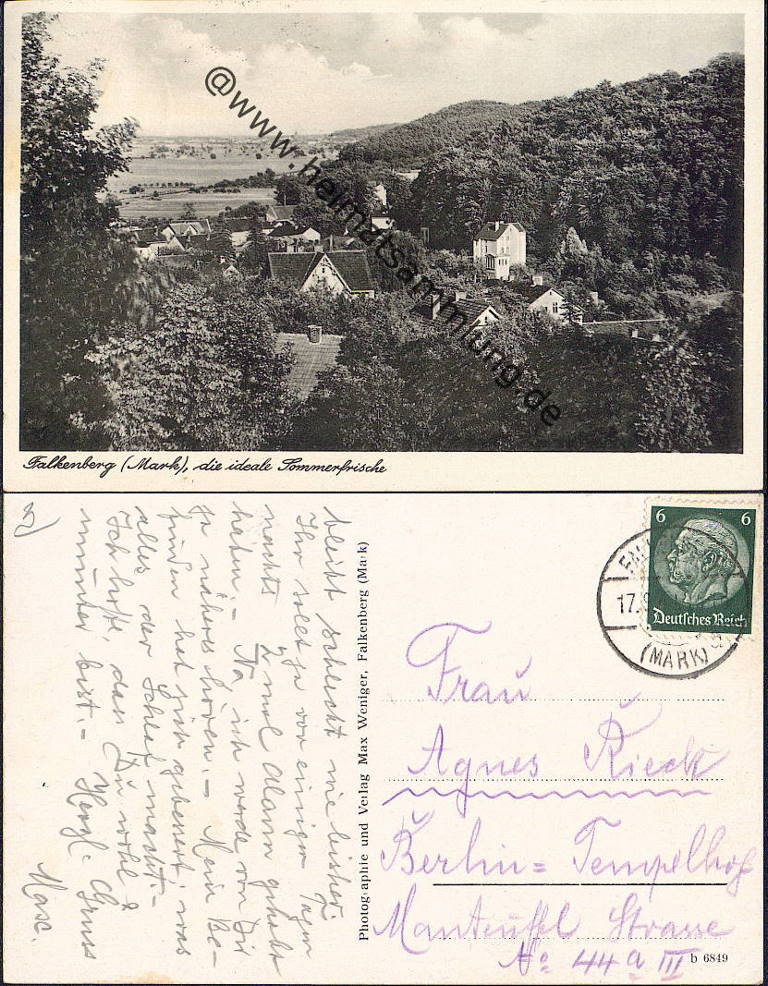 @www.heimatsammlung.de
Falkenberg (Mark), die ideale Sommerfrische
2)
bleibt schlecht wie bisher.
Ihr sollt ja vor einigen Tagen
nachts 2 mal Alarm gehabt
haben. - Na, ich werde von Dir
ja näheres hören. - Mein Be-
finden hat sich gebessert, was
alles der Schlaf macht. -
Ich hoffe, dass Du wohl &
munter bist. - Herzl. Gruss
Max.
Photographie und Verlag Max Weniger, Falkenberg (Mark)
6 6
Deutsches Reich
17.
(MARK)
Frau
Agnes Rieck
Berlin = Tempelhof
Manteuffel Strasse
No 44a III
b 6849